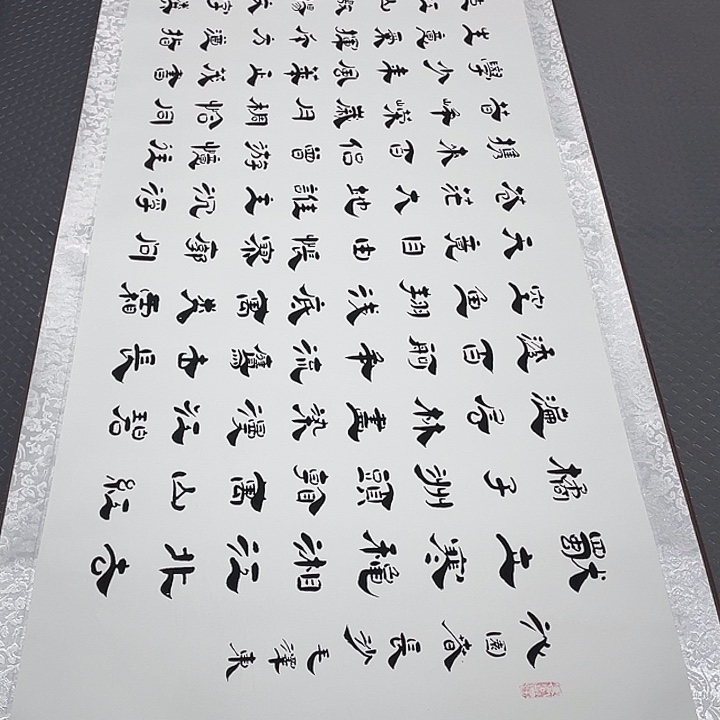 沁園春長沙毛澤東
獨立寒穐湘江北去
橘子洲頭看萬山紅
遍層林盡染漫江碧
透百舸爭流鷹擊長
空魚翔淺底萬類霜
天競自由悵寥廓問
蒼茫大地誰主沉浮
攜來百侶曾游憶往
昔崢嶸歲月稠恰同
學少年風華正茂書
生意氣揮斥方遒指